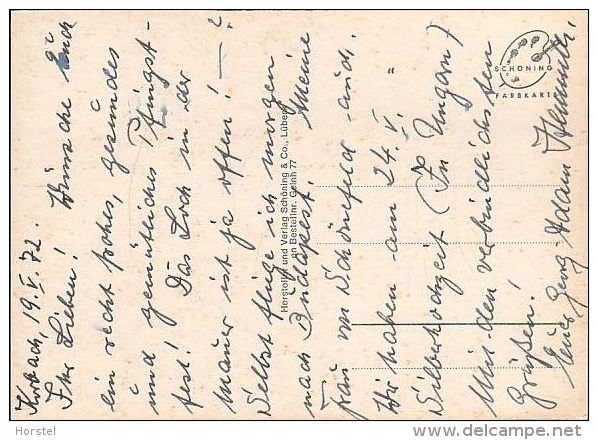 Korbach, 19.V.72.
Ihr Lieben! Wünsche Euch
ein recht frohes, gesundes
und gemütliches Pfingst-
fest! Das Loch in der
Mauer ist ja offen! — ?
Selbst fliege ich morgen
nach Budapest. Meine
Frau von Schönfeld auch.
Wir haben am 24.V. "
Silberhochzeit (In Ungarn)
Mit den verbindlichsten
Grüßen!
Euer Georg-Adam
Hersteller und Verlag Schöning & Co., Lübeck
Bestellnr. Gelnh 77
SCHÖNING
FARBKARTE
Horstel
www.delcampe.net